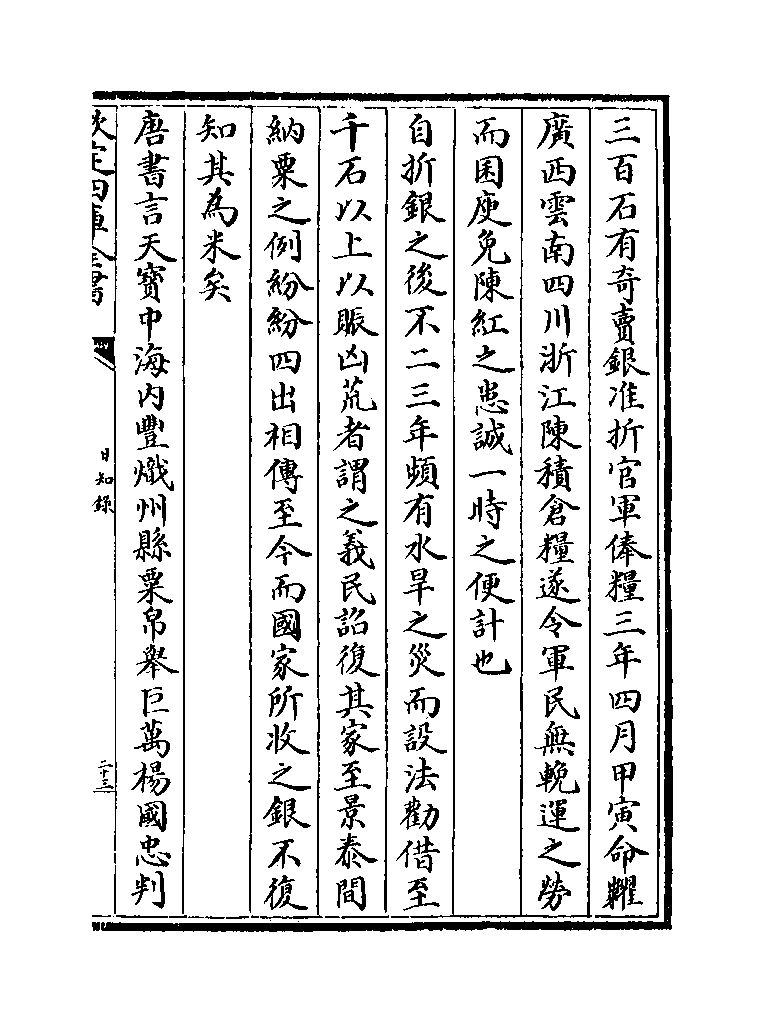 三百石有奇賣銀准折官軍俸糧三年四月甲寅命糶
廣西雲南四川浙江陳積倉糧遂令軍民無輓運之勞
而囷庾免陳紅之患誠一時之便計也
自折銀之後不二三年頻有水旱之災而設法勸借至
千石以上以賑凶荒者謂之義民詔復其家至景泰間
納粟之例紛紛四出相傳至今而國家所收之銀不復
知其為米矣
唐書言天寶中海内豐熾州縣粟帛舉巨萬楊國忠判
欽定四庫全書
日知錄
二十三